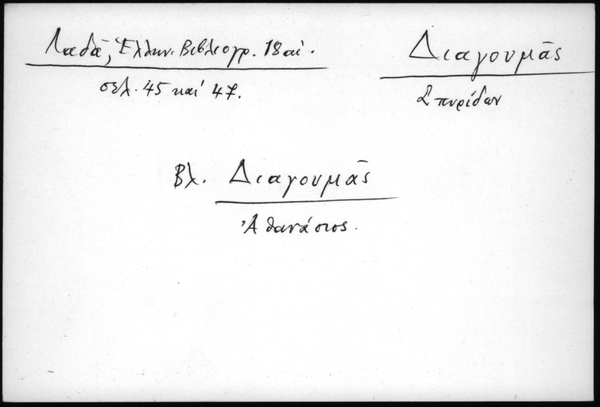 Λαδᾶ, Ἑλλην. Βιβλιογρ. 18 αἰ.
σελ. 45 καί 47.
Διαγουμᾶς
Σπυρίδων
Βλ. Διαγουμᾶς
Ἀθανάσιος.